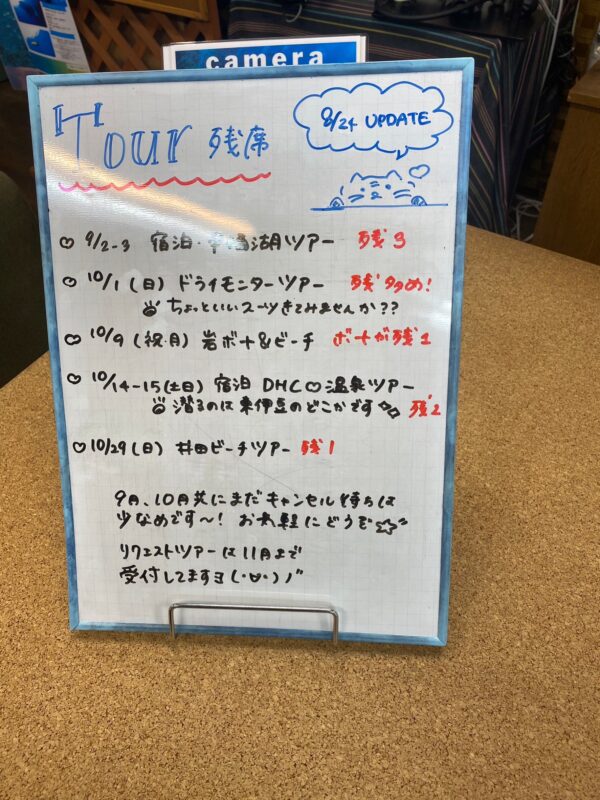 camera
Tour 残席
8/24 UPDATE
9/2-3 宿泊・本栖湖ツアー 残3
10/1(日)ドライモンターツアー 残多め!
ちょっといいスーツきてみませんか??
10/9(祝・月)岩ボート&ビーチ ボートが残1
10/14-15(土日)宿泊 DHC♡温泉ツアー
潜るのは東伊豆のどこかです 残2
10/29(日)井田ビーチツアー 残1
9月、10月共にまだキャンセル待ちは
少なめです〜!お気軽にどうぞ☆
リクエストツアーは11月まで
受付してますヨ(・∀・)ノ"